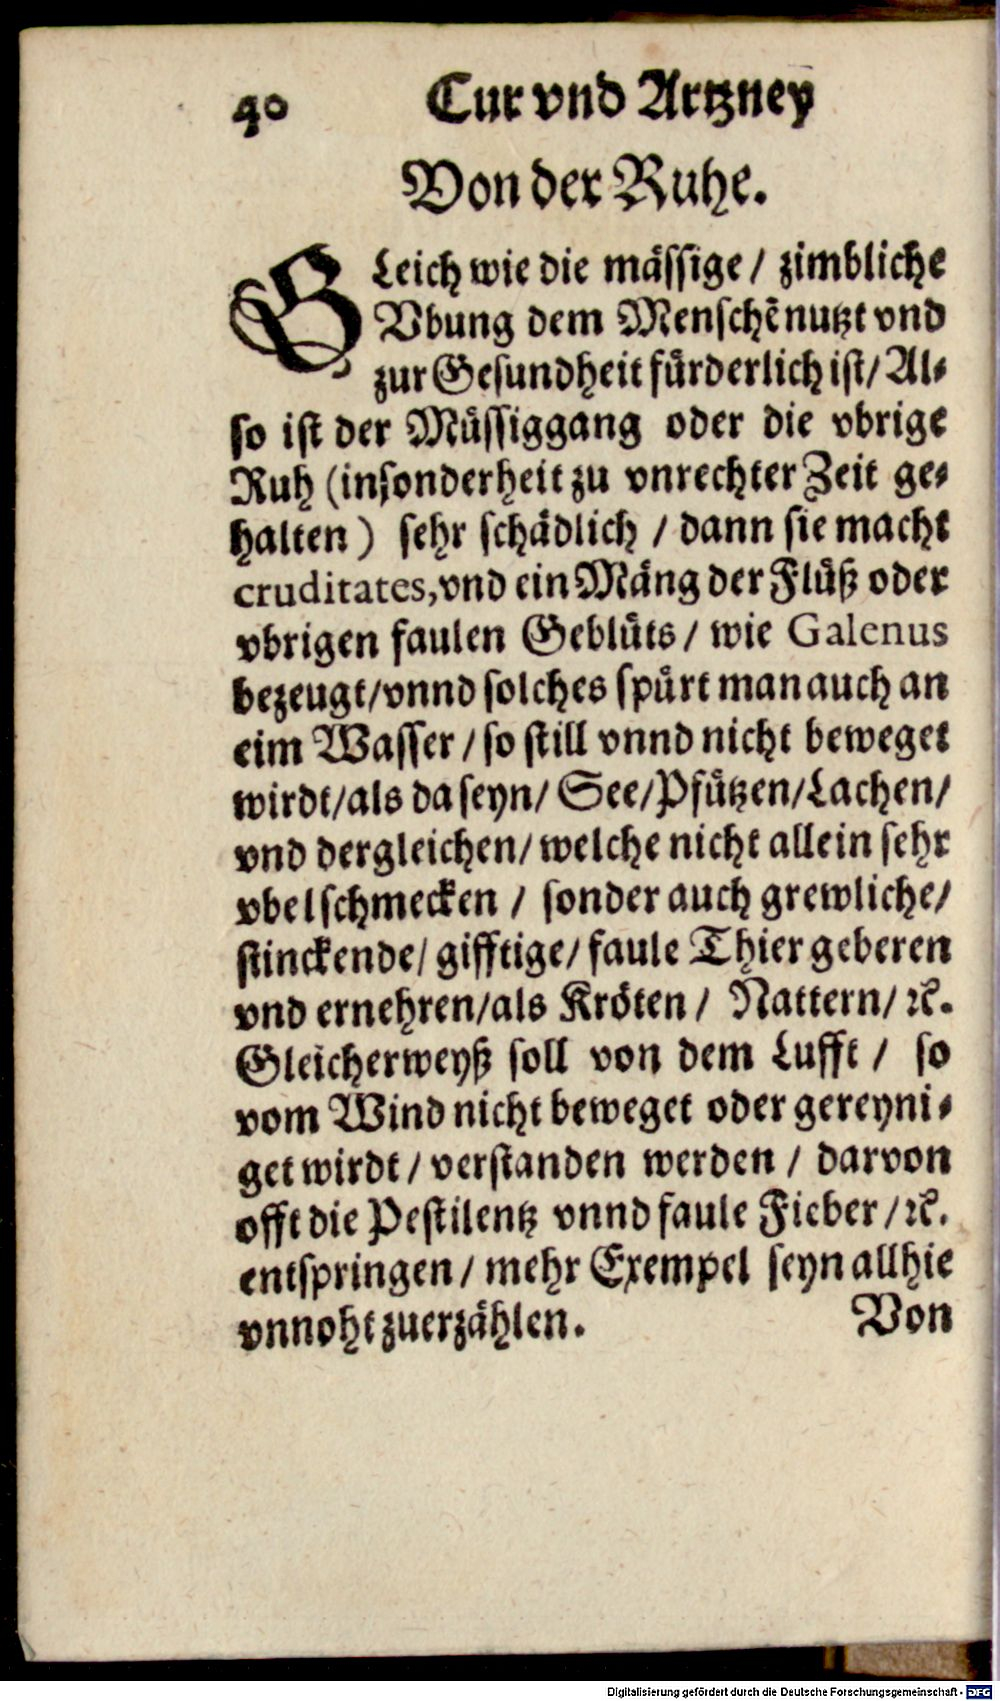 40 Cur vnd Artzney
Von der Ruhe.
GLeich wie die mässige / zimbliche
Vbung dem Menschẽ nutzt vnd
zur Gesundheit fürderlich ist / Al-
so ist der Müssiggang oder die vbrige
Ruh (insonderheit zu vnrechter Zeit ge-
halten) sehr schädlich / dann sie macht
cruditates, vnd ein Mäng der Flüß oder
vbrigen faulen Geblüts / wie Galenus
bezeugt / vnnd solches spürt man auch an
eim Wasser / so still vnnd nicht beweget
wirdt / als da seyn / See / Pfützen / Lachen /
vnd dergleichen / welche nicht allein sehr
vbel schmecken / sonder auch grewliche /
stinckende / gifftige / faule Thier geberen
vnd ernehren / als Kröten / Nattern / ꝛc.
Gleicherweyß soll von dem Lufft / so
vom Wind nicht beweget oder gereyni-
get wirdt / verstanden werden / darvon
offt die Pestilentz vnnd faule Fieber / ꝛc.
entspringen / mehr Exempel seyn allhie
vnnoht zuerzählen. Von
Digitalisierung gefördert durch die Deutsche Forschungsgemeinschaft - DFG